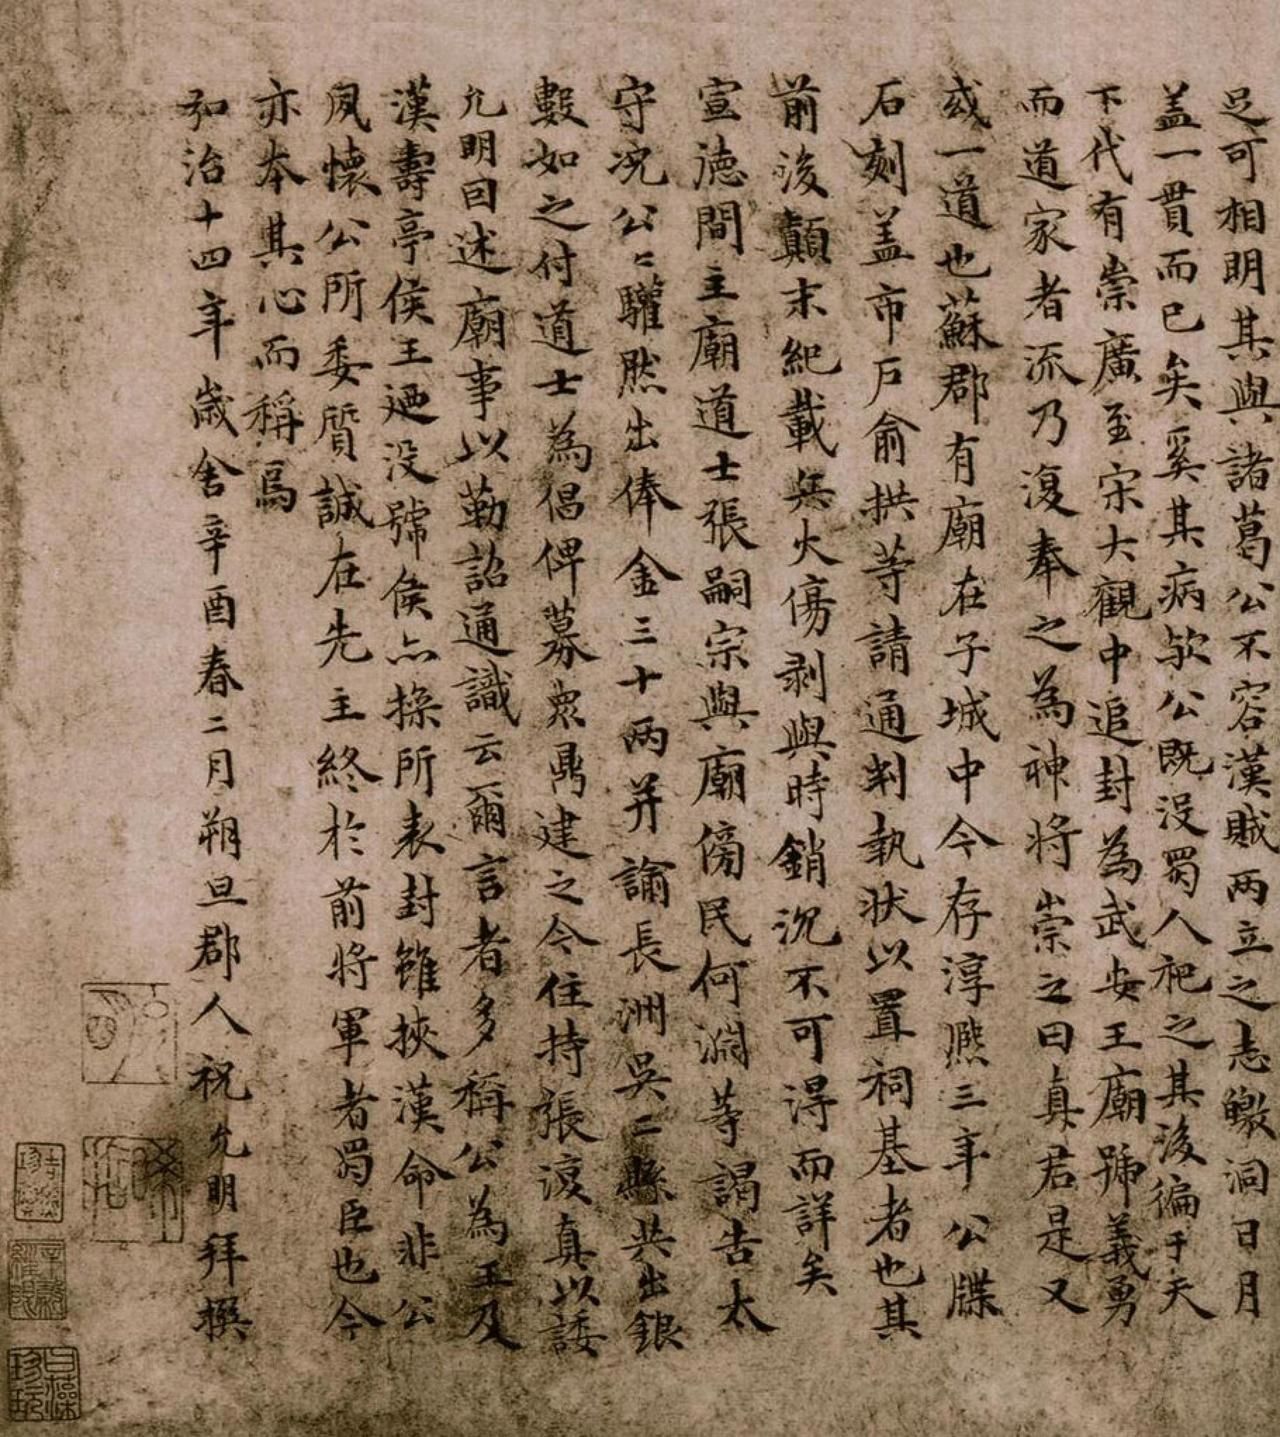 足可相明其與諸葛公不容漢賊兩立之志皦洞日月
盖一貫而已矣奚其病欤公既没蜀人祀之其後徧于天
下代有崇廣至宋大觀中追封為武安王廟號義勇
而道家者流乃復奉之為神将崇之曰真君是又
或一道也蘇郡有廟在子城中今存淳熈三年公牒
石刻盖市戶俞拱等請通判執状以置祠基者也其
前後顛末紀載兵火傷剥與時銷沉不可得而詳矣
宣德間主廟道士張嗣宗與廟傍民何淵等謁告太
守况公公驩然出俸金三十兩并諭長洲吳二縣共出銀
數如之付道士為倡俾募衆鼎建之今住持張湨真以諉
允明曰述廟事以勒詔通識云爾言者多稱公為王及
漢壽亭侯王廼没號侯亦操所表封雖挾漢命非公
夙懷公所委質誠在先主終於前将軍者蜀臣也今
亦本其心而稱焉
弘治十四年歲舍辛酉春二月朔旦郡人祝允明拜撰